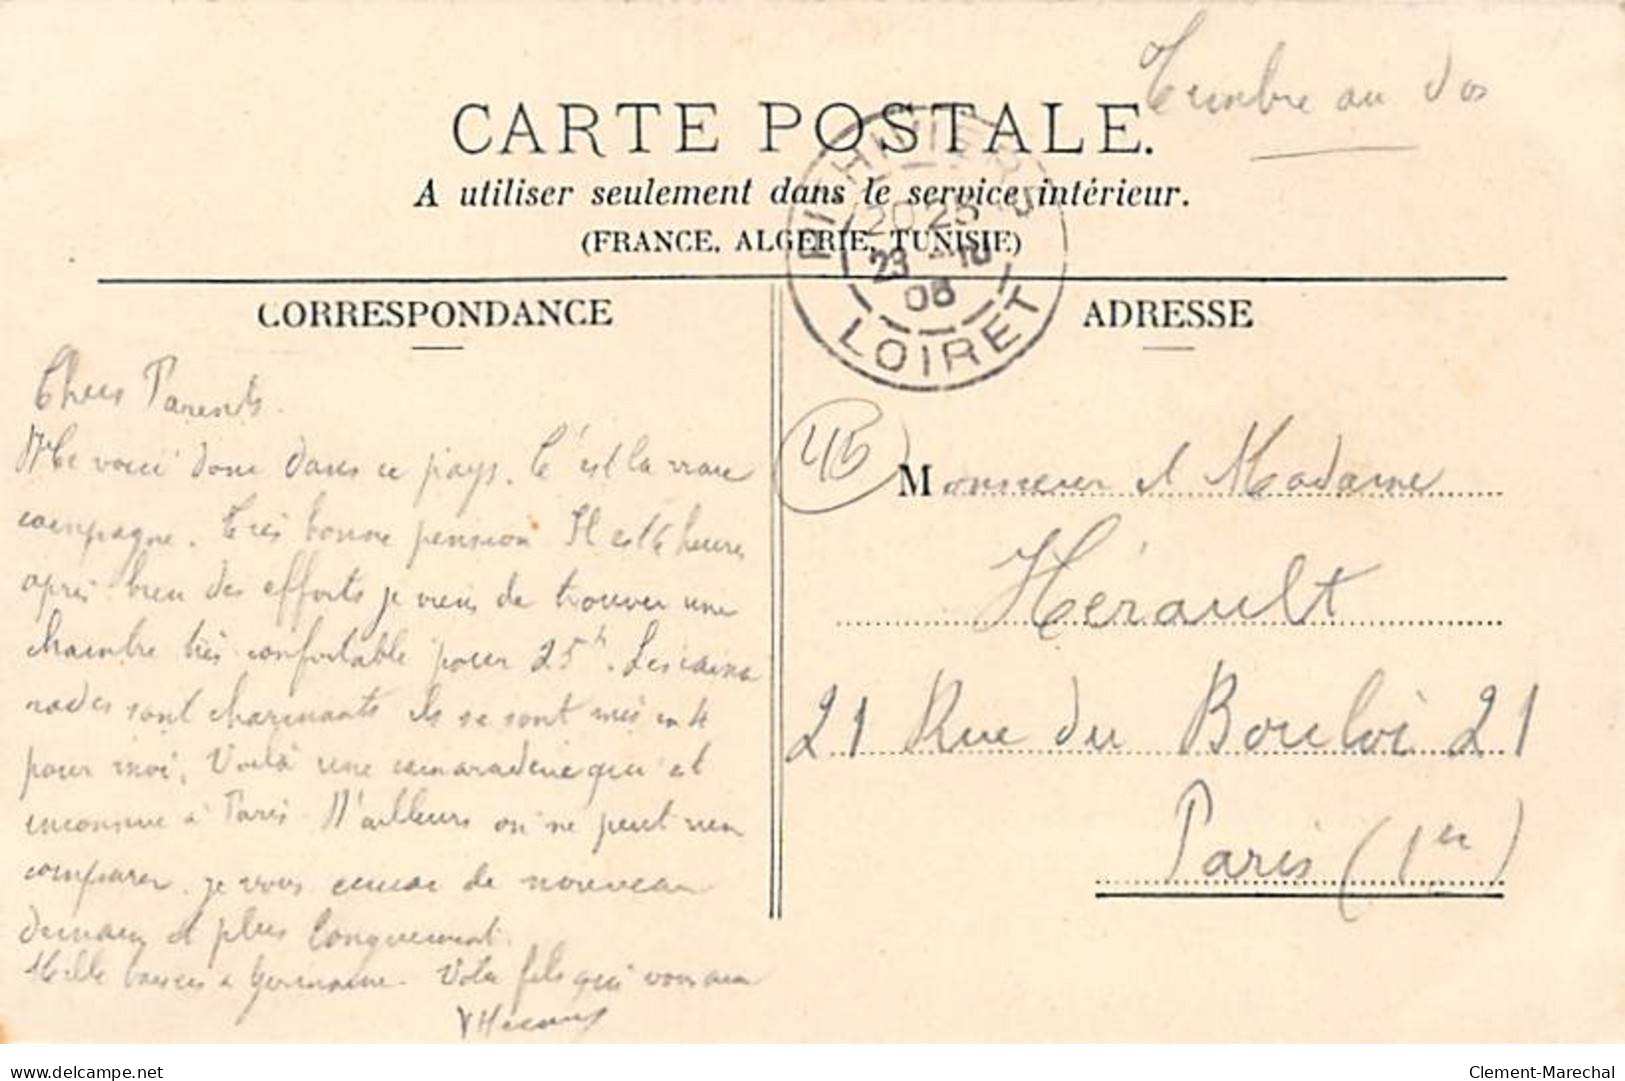 Timbre au dos
CARTE POSTALE.
A utiliser seulement dans le service intérieur.
(FRANCE, ALGERIE, TUNISIE)
PITHIVIERS
20 25
23
08
LOIRET
CORRESPONDANCE
Chers Parents.
Me voici donc dans ce pays. C'est la vraie
campagne. Très bonne pension Il est 6 heures
après bien des efforts je viens de trouver une
chambre très confortable pour 25 f. Les cama
rades sont charmants ils se sont mis en 4
pour moi, Voilà une camaraderie qui est
inconnue à Paris. D'ailleurs on ne peut rien
comparer. je vous de nouveau
demain et plus longuement.
Mille baisers à Germaine. Votre fils qui vous aime
ADRESSE
45
Monsieur et Madame
Hérault
21 Rue du Bouloi 21
Paris (1er)
delcampe.net
Clement-Marechal